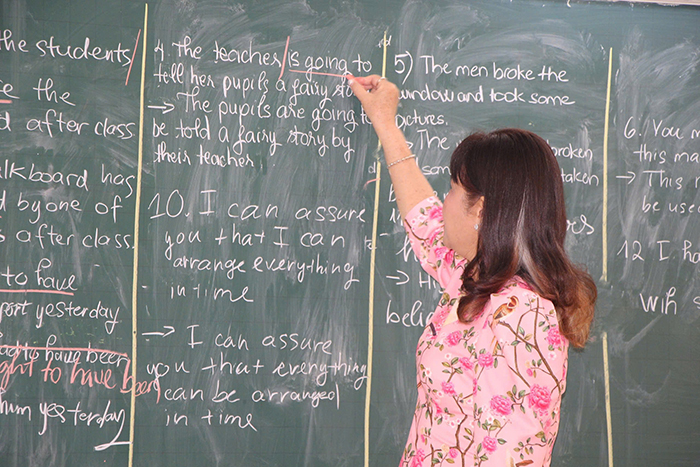 he students
the
after class
alkboard has
by one of
after class.
to have
port yesterday
to have been
ght to have been
yesterday
4. the teacher is going to
tell her pupils a fairy
→ The pupils are going
be told a fairy story by
their teacher
10. I can assure
you that I can
arrange everything
in time
→ I can assure
you that everything
can be arranged
in time
5) The men broke the
window and took some
pictures.
→ The
broken
some
taken
→
belie
6. You
this ma
→ This
be use
12 I ha